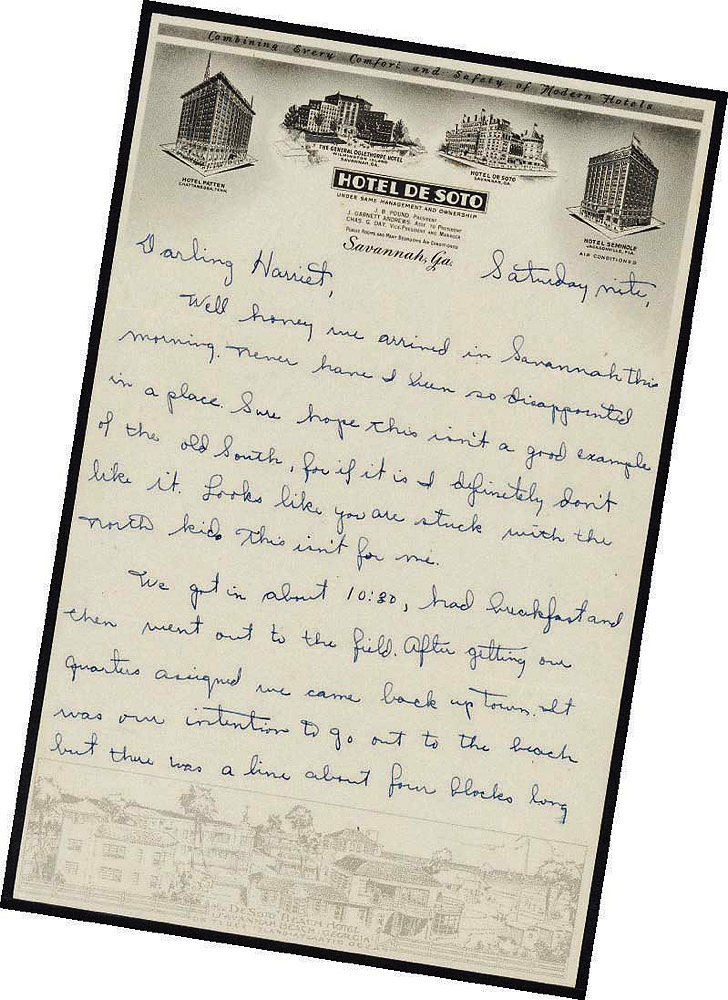 Combining Every Comfort and Safety of Modern Hotels
HOTEL PATTEN
CHATTANOOGA, TENN.
THE GENERAL OGLETHORPE HOTEL
WILMINGTON ISLAND
SAVANNAH, GA.
HOTEL DE SOTO
SAVANNAH, GA.
HOTEL SEMINOLE
JACKSONVILLE, FLA.
AIR CONDITIONED
HOTEL DE SOTO
UNDER SAME MANAGEMENT AND OWNERSHIP
J. B. POUND, PRESIDENT
J. GARNETT ANDREWS, ASST. TO PRESIDENT
CHAS. G. DAY, VICE-PRESIDENT AND MANAGER
PUBLIC ROOMS AND MANY BEDROOMS AIR CONDITIONED
Savannah, Ga.
Saturday nite,
Darling Harriet,
Well honey we arrived in Savannah this
morning. Never have I been so disappointed
in a place. Sure hope this isn't a good example
of the old South, for if it is I definetely don't
like it. Looks like you are stuck with the
north kid. This isn't for me.
We got in about 10:30, had breakfast and
then went out to the field. After getting our
quarters assigned we came back up town. It
was our intention to go out to the beach
but there was a line about four blocks long
THE DESOTO BEACH HOTEL
SAVANNAH BEACH, GEORGIA